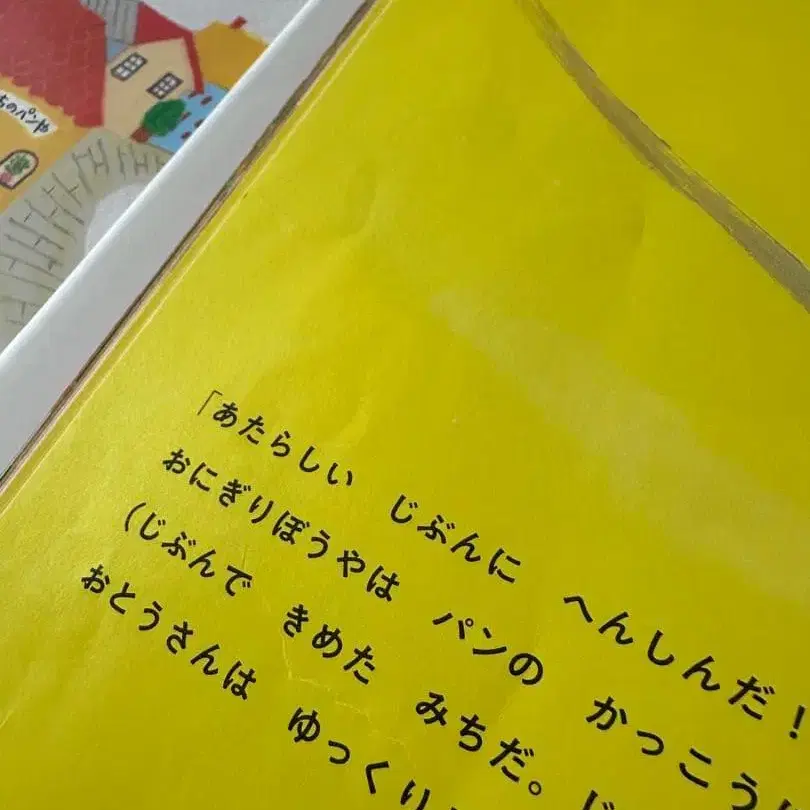 ちのパンや
「あたらしい　じぶんに　へんしんだ！
おにぎりぼうやは　パンの　かっこう
（じぶんで　きめた　みちだ。
おとうさんは　ゆっくり